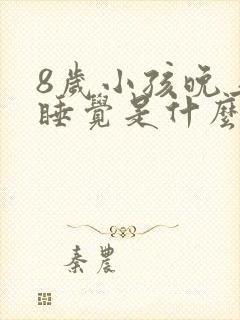 8歲小孩晚
睡覺是什麼
秦農